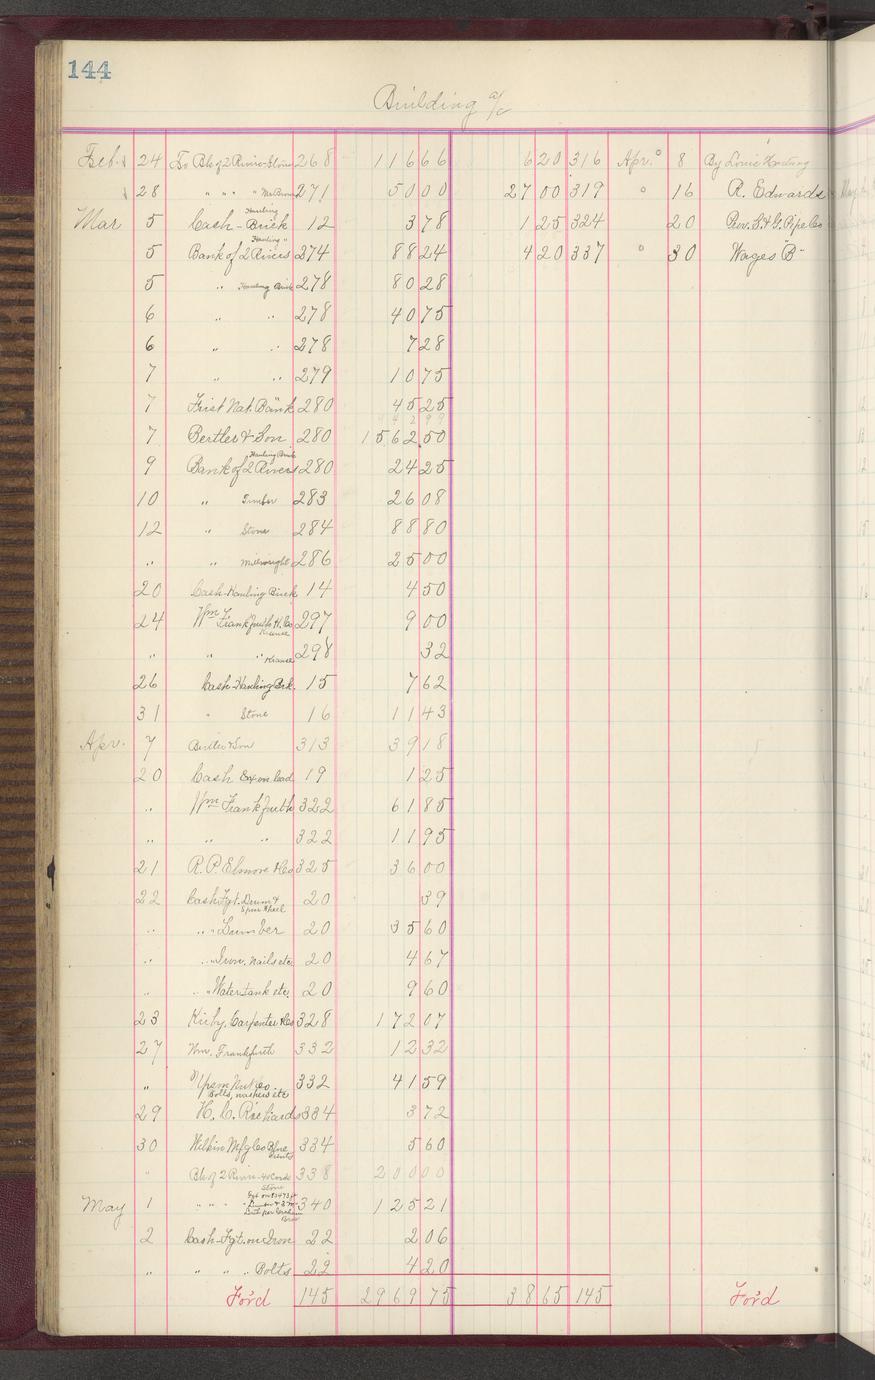 144
Building a/c
Feb. 24 To Bk of 2 Rivers Stone 268 116 66 6 20 316 Apr. 8 By Louis
28 " " " " 271 50 00 27 00 319 " 16 R. Edwards
Mar 5 Cash - Hauling Brick 12 3 78 1 25 324 20 Prov. S. & G. Pipe Co
5 Bank of 2 Rivers Hauling " 274 88 24 4 20 337 " 30 Wages "B"
5 " Hauling Brick 278 80 28
6 " " 278 40 75
6 " " 278 7 28
7 " " 279 10 75
7 First Nat. Bank 280 45 25
7 Bertler & Son 280 1562 50
9 Bank of 2 Rivers Hauling Brick 280 24 25
10 " Timber 283 26 08
12 " Stone 284 88 80
" " Millwright 286 25 00
20 Cash Hauling Brick 14 4 50
24 Wm Frankfurth H. Co 297 9 00
" " " 298 32
26 Cash Hauling Brk. 15 7 62
31 " Stone 16 11 43
Apr. 7 Bertler & Son 313 39 18
20 Cash Exp on lead 19 1 25
" Wm Frankfurth 322 61 85
" " " 322 11 95
21 R. P. Elmore & Co 325 36 00
22 Cash Fgt. Drum & Spur Wheel 20 39
" " " Lumber 20 35 60
" " " Iron, nails etc. 20 4 67
" " " Water tank etc. 20 9 60
23 Kirby, Carpenter & Co 328 172 07
27 Wm. Frankfurth 332 12 32
" Upson Nut Co. Bolts, washers etc 332 41 59
29 H. C. Richards 334 3 72
30 Wilkin Mfg Co Blue Prints 334 5 60
" Bk of 2 Rivers 40 Cords Stone 338 200 00
May 1 " " " 340 125 21
2 Cash Fgt. on Iron 22 2 06
" " " " Bolts 22 4 20
Fo'r'd 145 2969 75 38 65 145 Fo'r'd